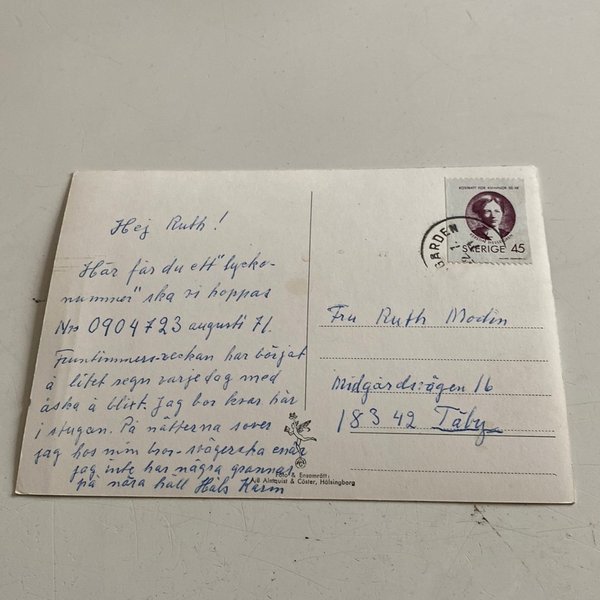 Hej Ruth!
Här får du ett "lycko-
nummer" ska vi hoppas
No 0904723 augusti 71.
Fruntimmersveckan har börjat
å litet regn varje dag med
åska å blixt. Jag bor kvar här
i stugan. På nätterna sover
jag hos min bror-svägerska enär
jag inte har några grannar
på nära håll Häls Karin
& Ensamrätt:
A/B Almquist & Cöster, Hälsingborg
RÖSTRÄTT FÖR KVINNOR 50 ÅR
SVERIGE 45
GÅRDEN
Fru Ruth Modin
Midgårdsvägen 16
183 42 Täby